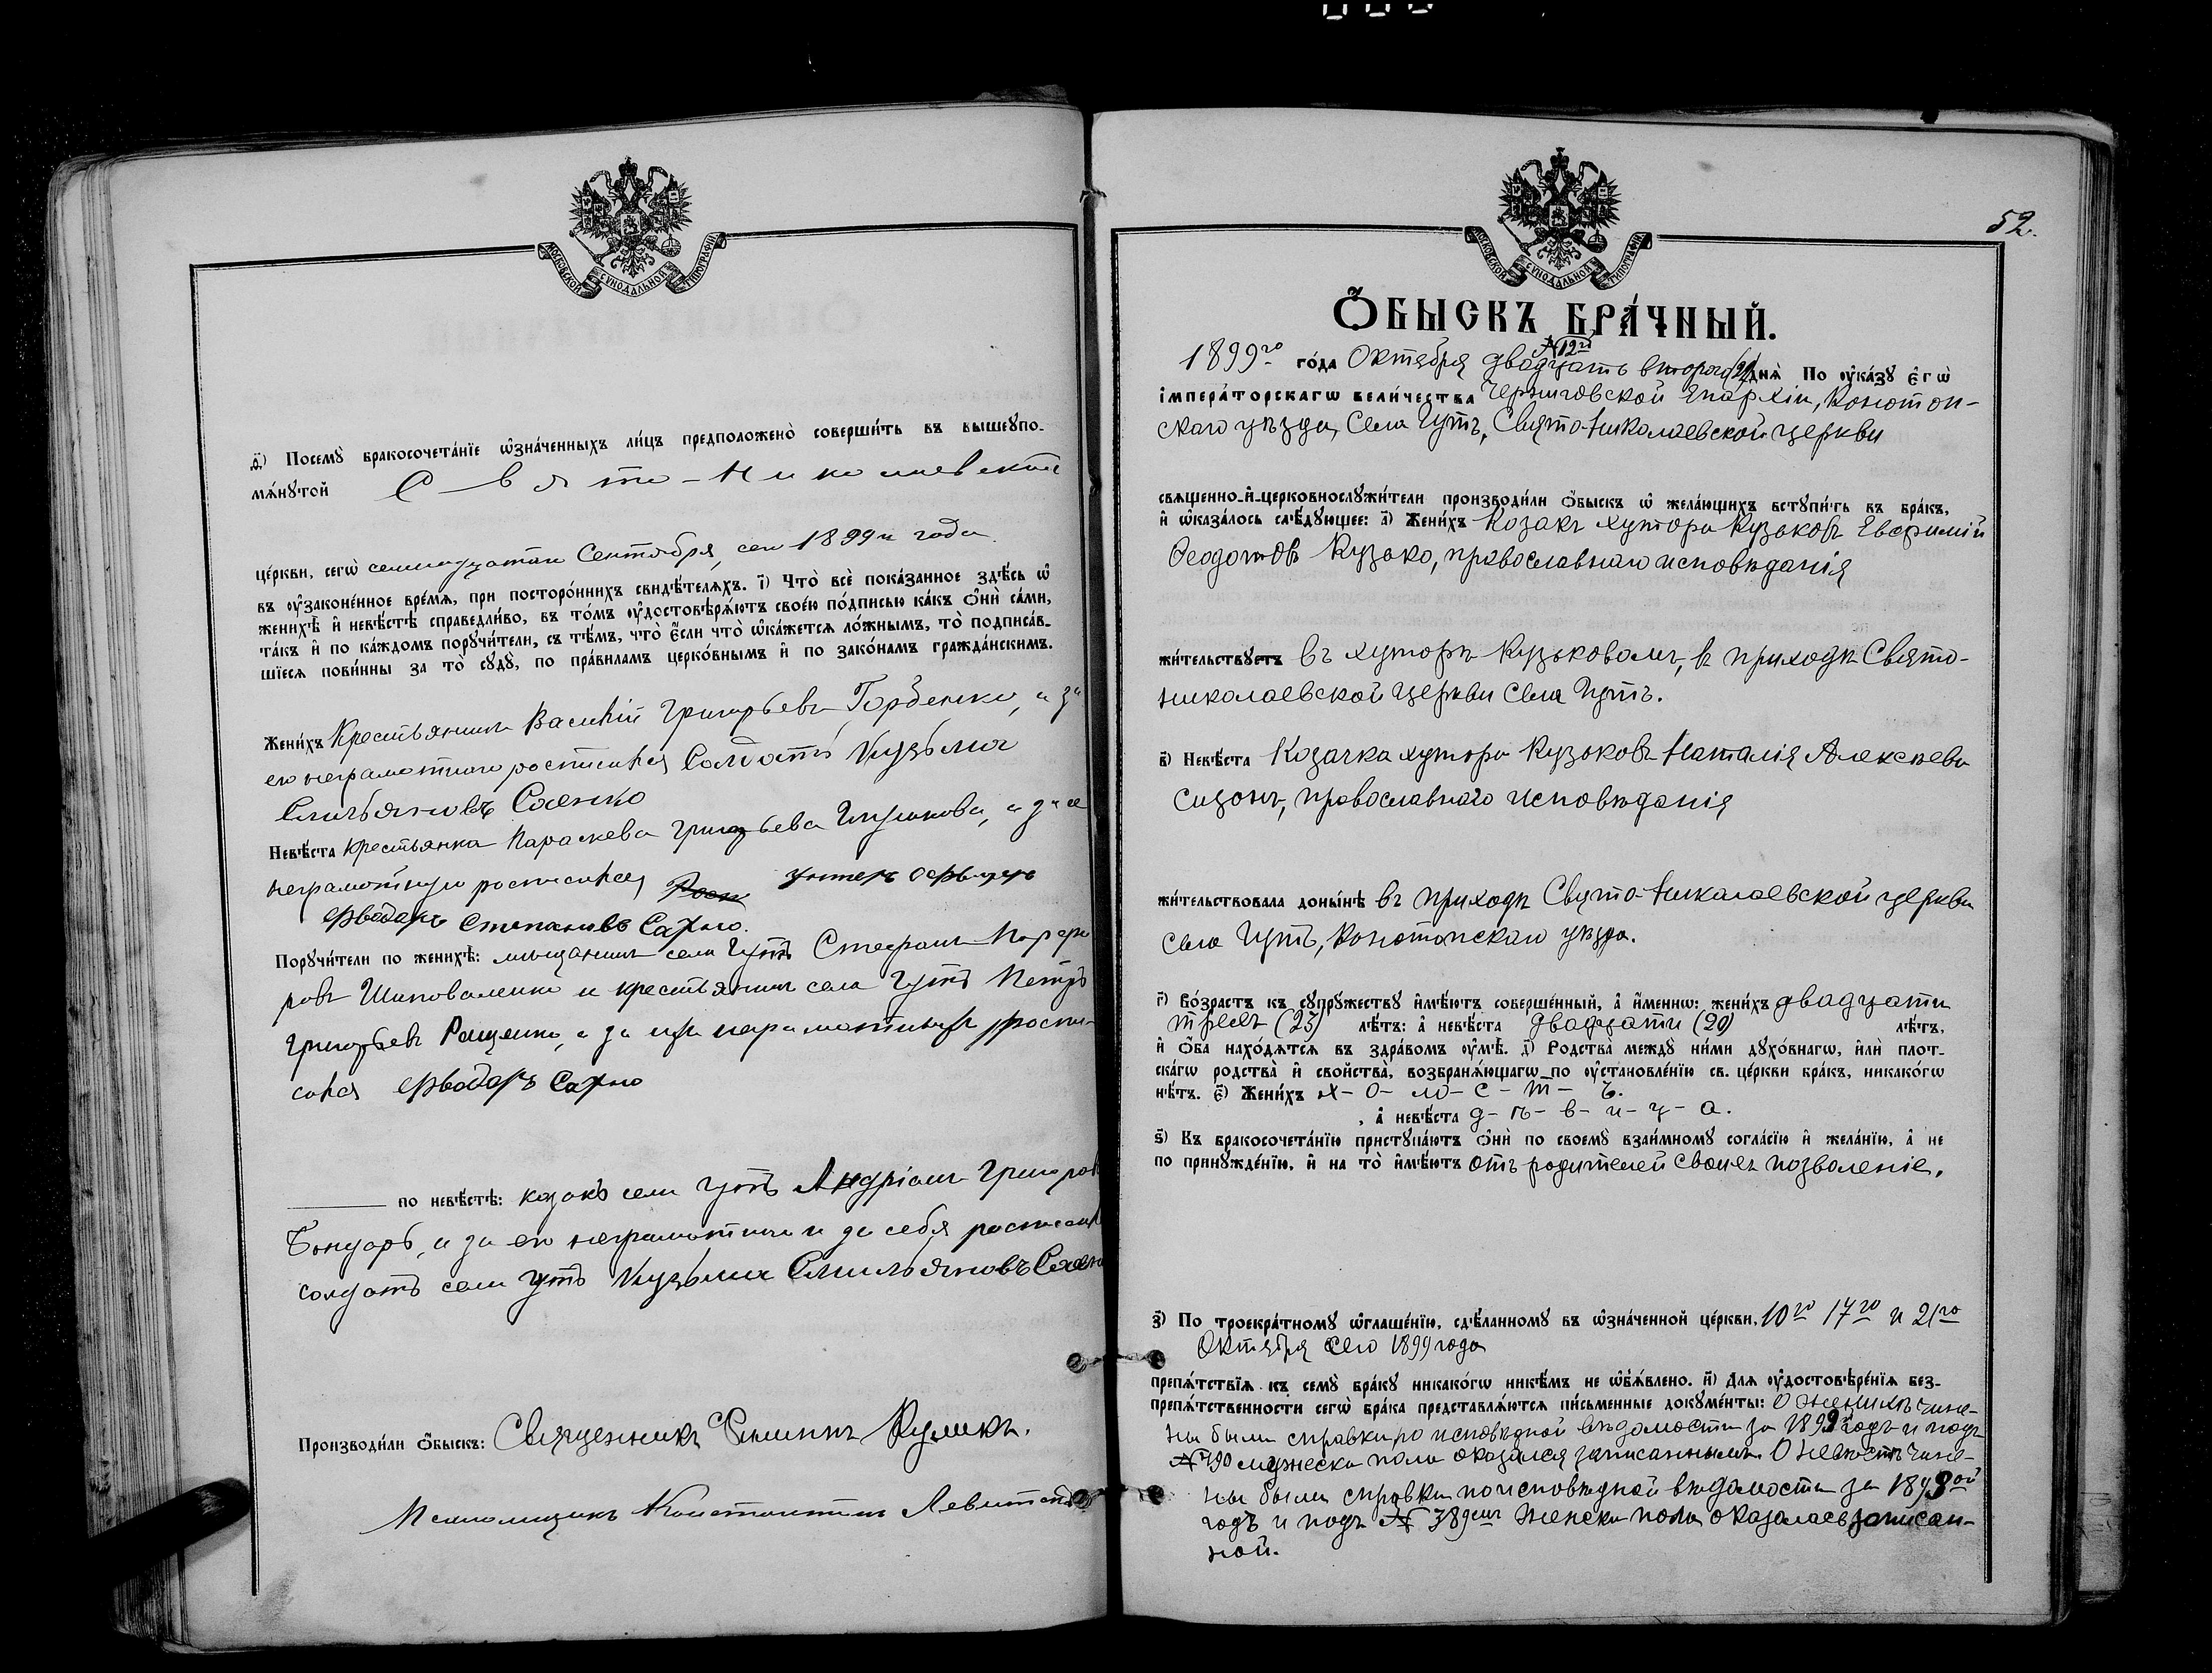 МОСКОВСКОЙ СУНОДАЛЬНОЙ ТИПОГРАФІИ
ѳ҃) Посемꙋ̀ бракосочета́нїе ѡ҆зна́ченныхъ ли́цъ предположено̀ соверши́ть въ вышеꙋпо-
мѧ́нꙋтой С-в я то - Н и ко лаевской
це́ркви, сегѡ̀ семнадцатаго Сентября, сего 1899 г года
въ ᲂу҆законе́нное вре́мѧ, при посторо́ннихъ свидѣ́телѧхъ. і҃) Что̀ всѐ пока́занное здѣ́сь ѡ҆
женихѣ̀ и҆ невѣ́стѣ справедли́во, въ то́мъ ᲂу҆достовѣрѧ́ютъ свое́ю по́дписью ка́къ ѻ҆нѝ са́ми,
та́къ и҆ по ка́ждомъ порꙋчи́тели, съ тѣ́мъ, что̀ є҆́сли что̀ ѡ҆ка́жетсѧ ло́жнымъ, то̀ подписа́в-
шїесѧ пови́нны за то̀ сꙋдꙋ̀, по пра́виламъ церко́внымъ и҆ по зако́намъ гражда́нскимъ.
Жени́хъ Крестьянинъ Василій Григорьевъ Горбенко, а за
его неграмотного росписался Солдатъ Кузьма
Емильяновъ Саенко
Невѣ́ста Крестьянка Параскева Григорьева Глушкова, а за нее
неграмотную росписался унтеръ офицеръ
Ѳводоръ Степановъ Сахно.
Порꙋчи́тели по женихѣ̀: мещанинъ села Гутъ Стефанъ Порфи
ровъ Шаповаленко и крестьянинъ села Гутъ Петръ
Григорьевъ Ращенко, а за ихъ неграмотныхъ роспи-
сался Ѳводоръ Сахно
по невѣ́стѣ: козакъ села Гутъ Андріанъ Григоров
Бондарь, а за его неграмотного и за себя росписался
солдатъ села Гутъ Кузьма Емильяновъ Саенко
Производи́ли ѻ҆́быскъ: Священникъ Филиппъ Куликъ.
Псаломщикъ Константинъ Левитскій
52.
МОСКОВСКОЙ СУНОДАЛЬНОЙ ТИПОГРАФІИ
Ѻ҆́БЫСКЪ БРА́ЧНЫЙ.
№ 12й
1899го го́да Октября двадцать второго (22) днѧ̀ По ᲂу҆ка́зꙋ є҆гѡ̀
і҆мпера́торскагѡ вели́чества Черниговской Епархіи, Конотоп-
скаго уѣзда, Села Гутъ, Свято-Николаевской церкви
свѧщенно-и҆-церковнослꙋжи́тели производи́ли ѻ҆́быскъ ѡ҆ жела́ющихъ встꙋпи́ть въ бра́къ,
и҆ ѡ҆каза́лось слѣ́дꙋющее: а҃) Жени́хъ Козакъ хутора Кузьковъ Евфимій
Ѳеодотовъ Кузько, православнаго исповѣданія
жи́тельствꙋетъ въ хуторѣ Кузьковомъ, въ приходѣ Свято-
Николаевской церкви Села Гутъ.
в҃) Невѣ́ста Козачка хутора Кузьковъ Наталія Алексѣева
Сизонъ, православнаго исповѣданія
жи́тельствовала доны́нѣ въ приходѣ Свято-Николаевской церкви
Села Гутъ, Конотопскаго уѣзда.
г҃) Во́зрастъ къ сꙋпрꙋ́жествꙋ и҆мѣ́ютъ соверше́нный, а҆ и҆́меннѡ: жени́хъ двадцати
трехъ (23) лѣ́тъ: а҆ невѣ́ста двадцати (20) лѣ́тъ,
и҆ ѻ҆́ба нахо́дѧтсѧ въ здра́вомъ ᲂу҆мѣ̀. д҃) Родства̀ междꙋ̀ ни́ми дꙋхо́внагѡ, и҆лѝ плот-
ска́гѡ родства̀ и҆ сво́йства̀, возбранѧ́ющагѡ по ᲂу҆становле́нїю св. це́ркви бра́къ, никако́гѡ
нѣ́тъ. є҃) Жени́хъ х- о- ло- с- т- ъ.
, а҆ невѣ́ста д- ѣ- в- и- ц- а.
ѕ҃) Къ бракосочета́нїю пристꙋпа́ютъ ѻ҆нѝ по своемꙋ̀ взаи́мномꙋ согла́сїю и҆ жела́нїю, а҆ не
по принꙋжде́нїю, и҆ на то̀ и҆мѣ́ютъ отъ родителей своихъ позволеніе.
з҃) По троекра́тномꙋ ѡ҆глаше́нїю, сдѣ́ланномꙋ въ ѡ҆зна́ченной це́ркви, 10го 17го и 21го
Октября сего 1899 года
препѧ́тствїѧ къ семꙋ̀ бра́кꙋ никако́гѡ никѣ́мъ не ѡ҆б̾ѧ́влено. и҃) Длѧ ᲂу҆достовѣре́нїѧ без-
препѧ́тственности сегѡ̀ бра́ка представлѧ́ютсѧ пи́сьменные докꙋме́нты: О женихѣ чине-
ны были справки по исповѣдной вѣдомости за 1898 годъ и подъ
№ 490 мужеска пола оказался записаннымъ. О невѣстѣ чине-
ны были справки по исповѣдной вѣдомости за 1898ой
годъ и подъ № 389емъ женска пола оказалась записан-
ной.